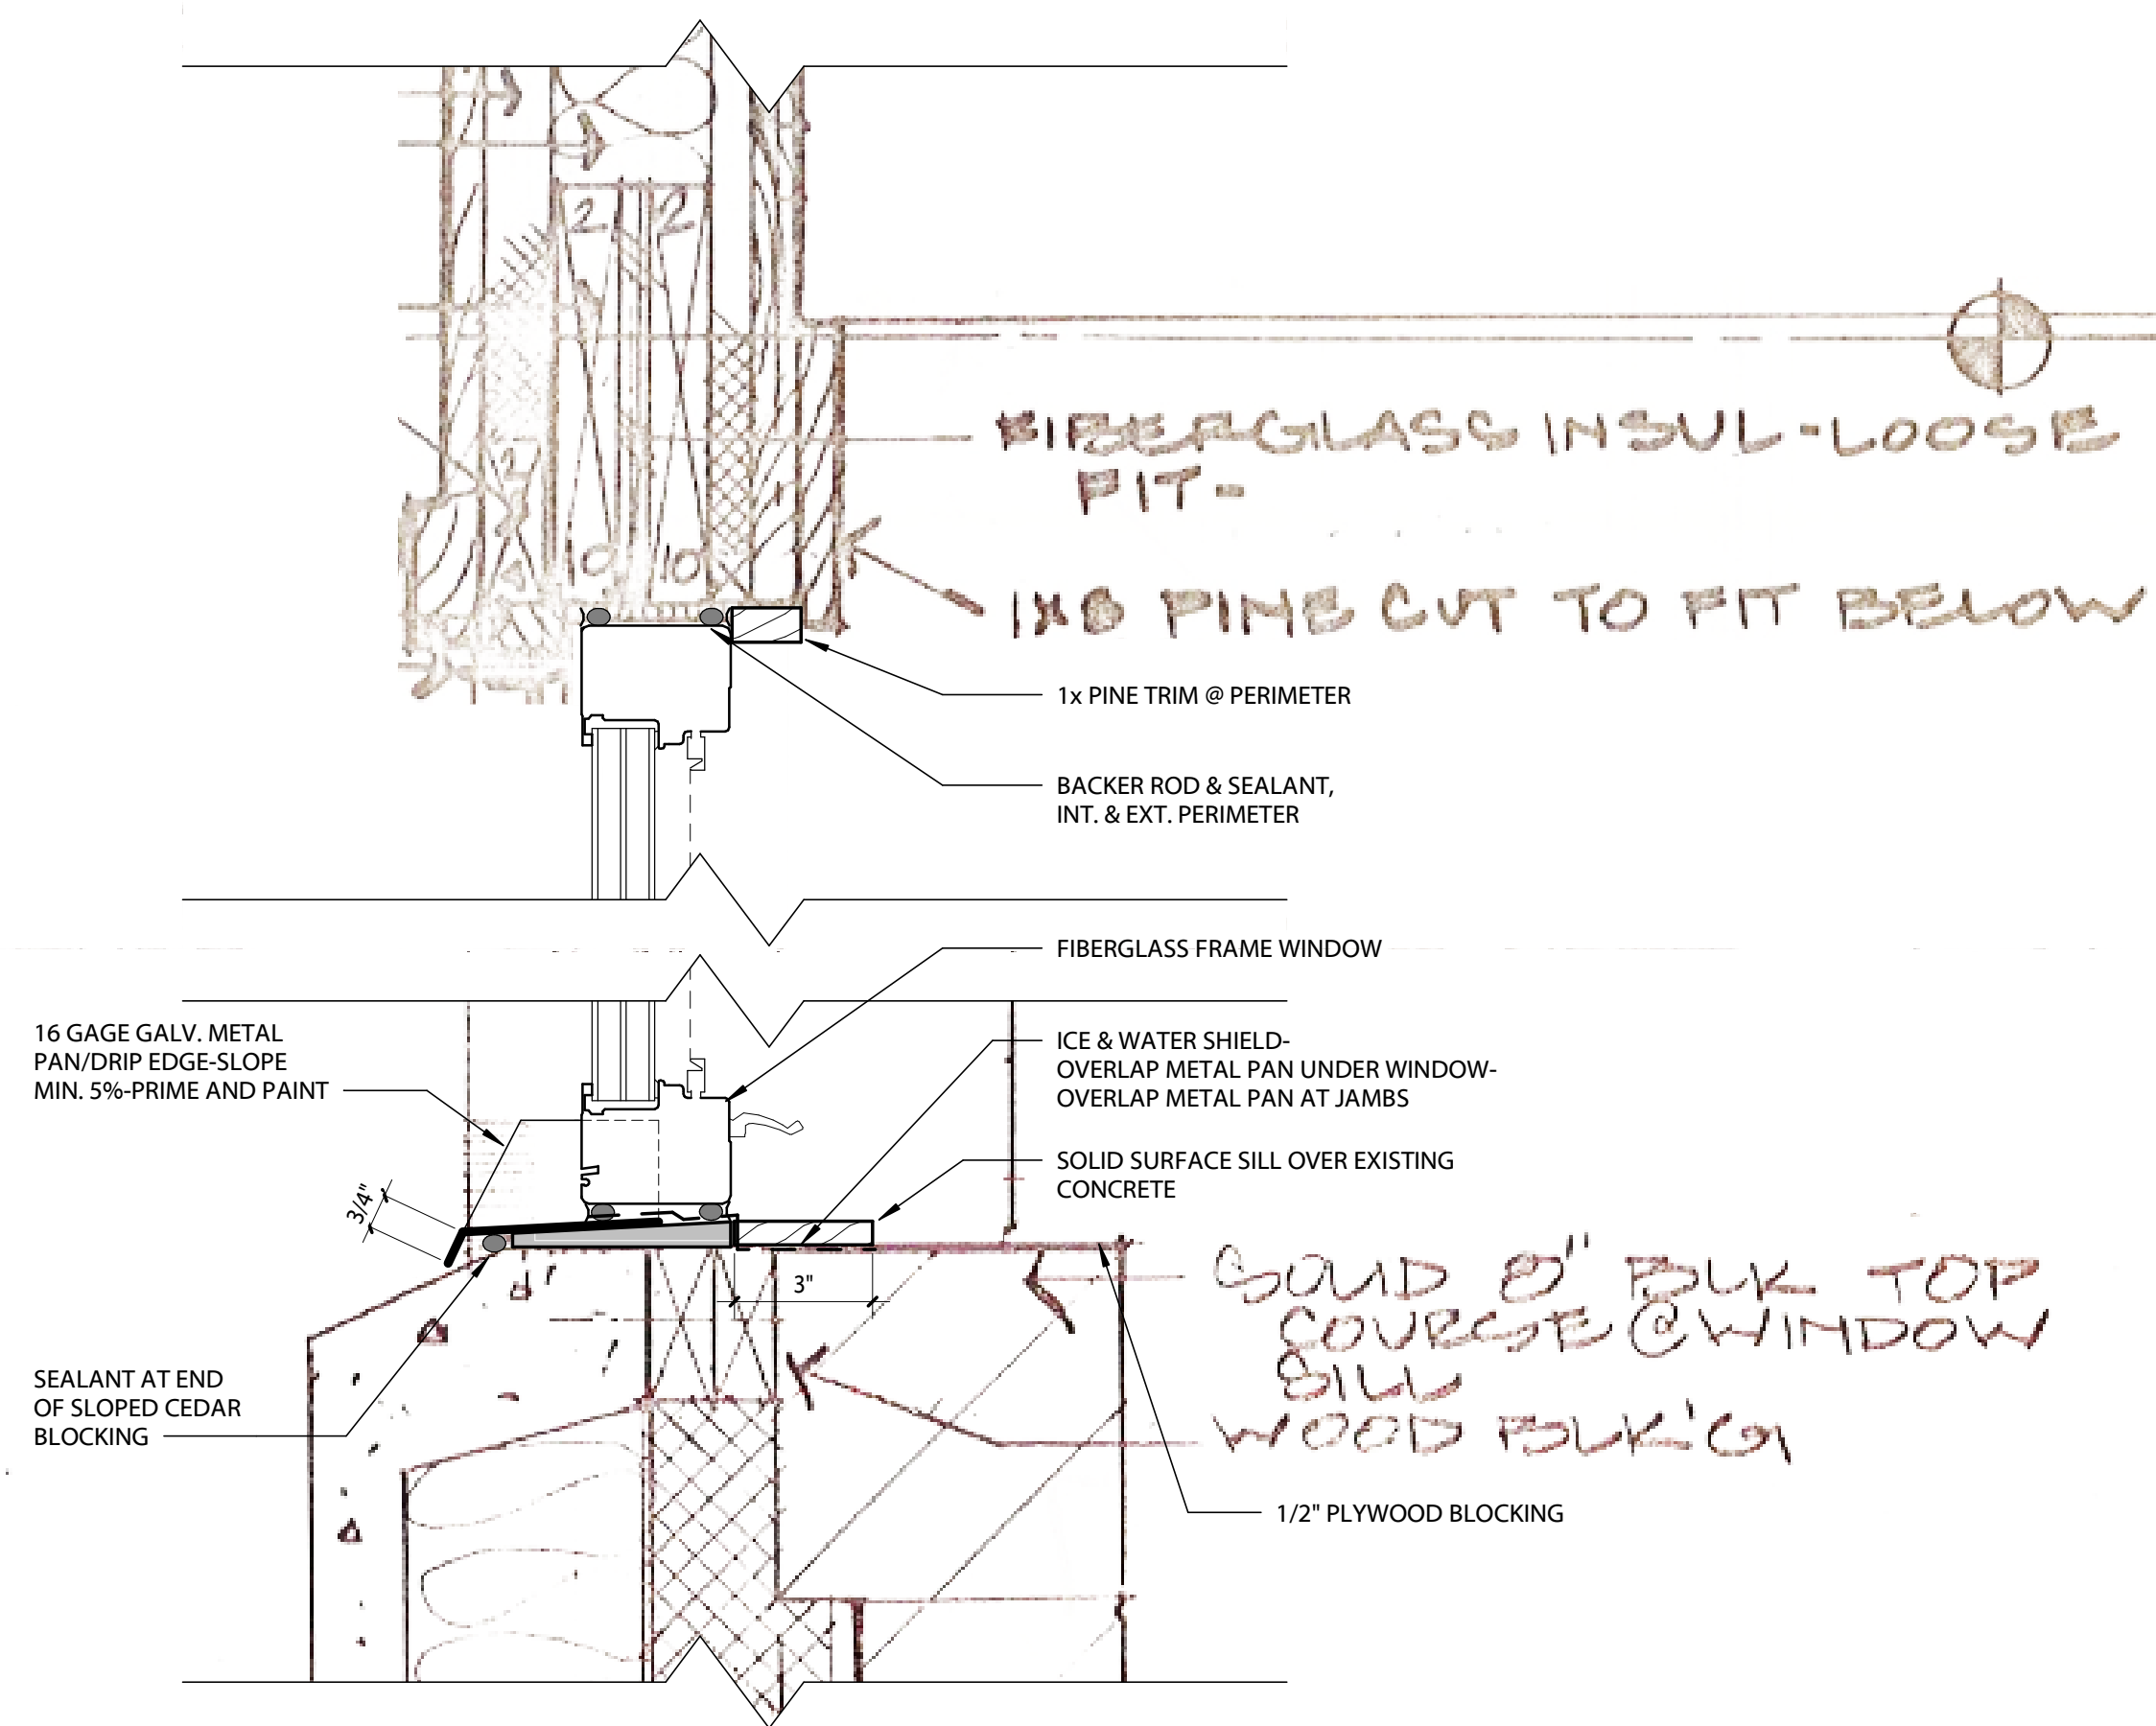 2 2
2
10 10
FIBERGLASS INSUL-LOOSE
FIT-
1X8 PINE CUT TO FIT BELOW
1x PINE TRIM @ PERIMETER
BACKER ROD & SEALANT,
INT. & EXT. PERIMETER
FIBERGLASS FRAME WINDOW
16 GAGE GALV. METAL
PAN/DRIP EDGE-SLOPE
MIN. 5%-PRIME AND PAINT
ICE & WATER SHIELD-
OVERLAP METAL PAN UNDER WINDOW-
OVERLAP METAL PAN AT JAMBS
SOLID SURFACE SILL OVER EXISTING
CONCRETE
3/4"
3"
SOLID 8" BLK TOP
COURSE @ WINDOW
SILL
WOOD BLK'G
SEALANT AT END
OF SLOPED CEDAR
BLOCKING
1/2" PLYWOOD BLOCKING